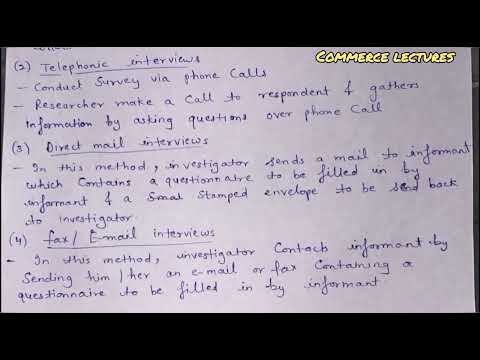 COMMERCE LECTURES
(2) Telephonic interviews
- Conduct Survey via phone Calls
- Researcher make a Call to respondent & gathers
information by asking questions over phone Call
(3) Direct mail interviews
- In this method, investigator sends a mail to informant
which Contains a questionnaire to be filled in by
informant & a Small Stamped envelope to be send back
to investigator.
(4) fax/ E-mail interviews
- In this method, investigator Contacts informant by
Sending him/her an e-mail or fax Containing a
questionnaire to be filled in by informant